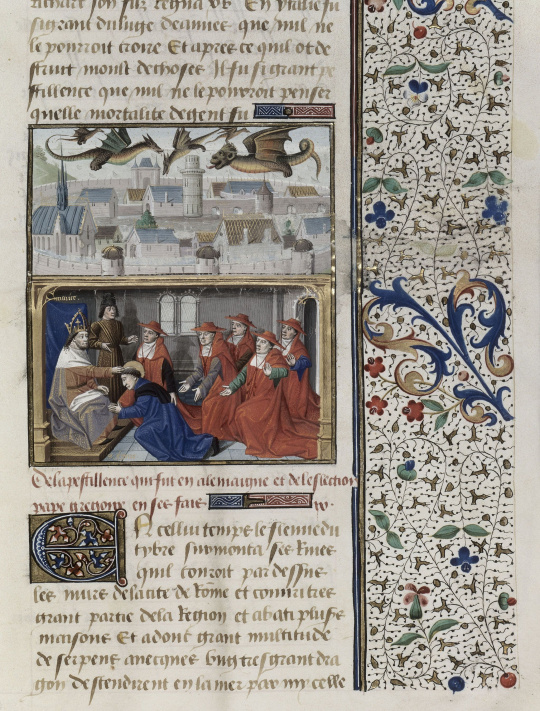 sagrant duluge deaues que nul ne
le pourroit croire Et apres ce quil ot de
struit moult de choses Il fu si grant pe
stillence que nul ne le pourroit penser
quelle mortalite de gent fu
De la pestillence qui fut en alemaigne et de lelection
pape gregoire en ses fais
En cellui temps le fleuue du
tybre surmonta ses Riues
quil couroit par dessus
les murs de la cite de Rome et couuri tres
grant partie de la Region et abati plus
maisons Et adont grant multitude
de serpens auecques vng tresgrant dra
gon descendirent en la mer par my celle